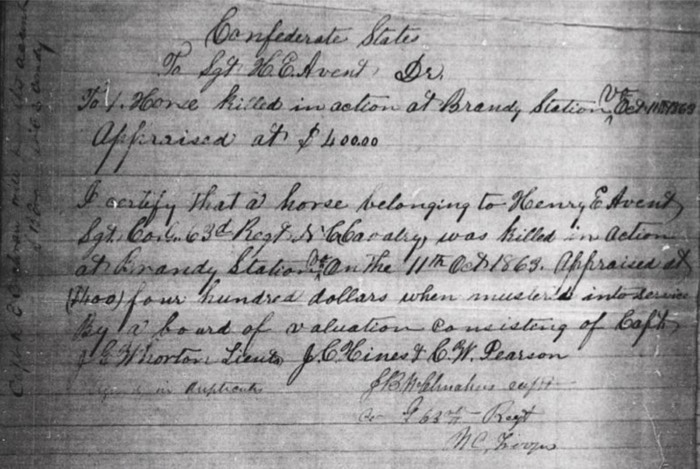 Confederate States
To Sgt H. E. Avent, Dr.
To 1. Horse killed in action at Brandy Station Va Oct 11th 1863
Appraised at $ 400.00
I certify that a horse belonging to Henry E. Avent,
Sgt. Co. 63d Regt N. C. Cavalry, was killed in action
at Brandy Station Va On the 11th Oct 1863. Appraised at
($400) four hundred dollars when muster'd into service
By a board of valuation consisting of Capt.
J E Whorton Lieuts J. C. Hines & C. W. Pearson
in duplicate
capt
Co 63rd Regt
N. C. Troops